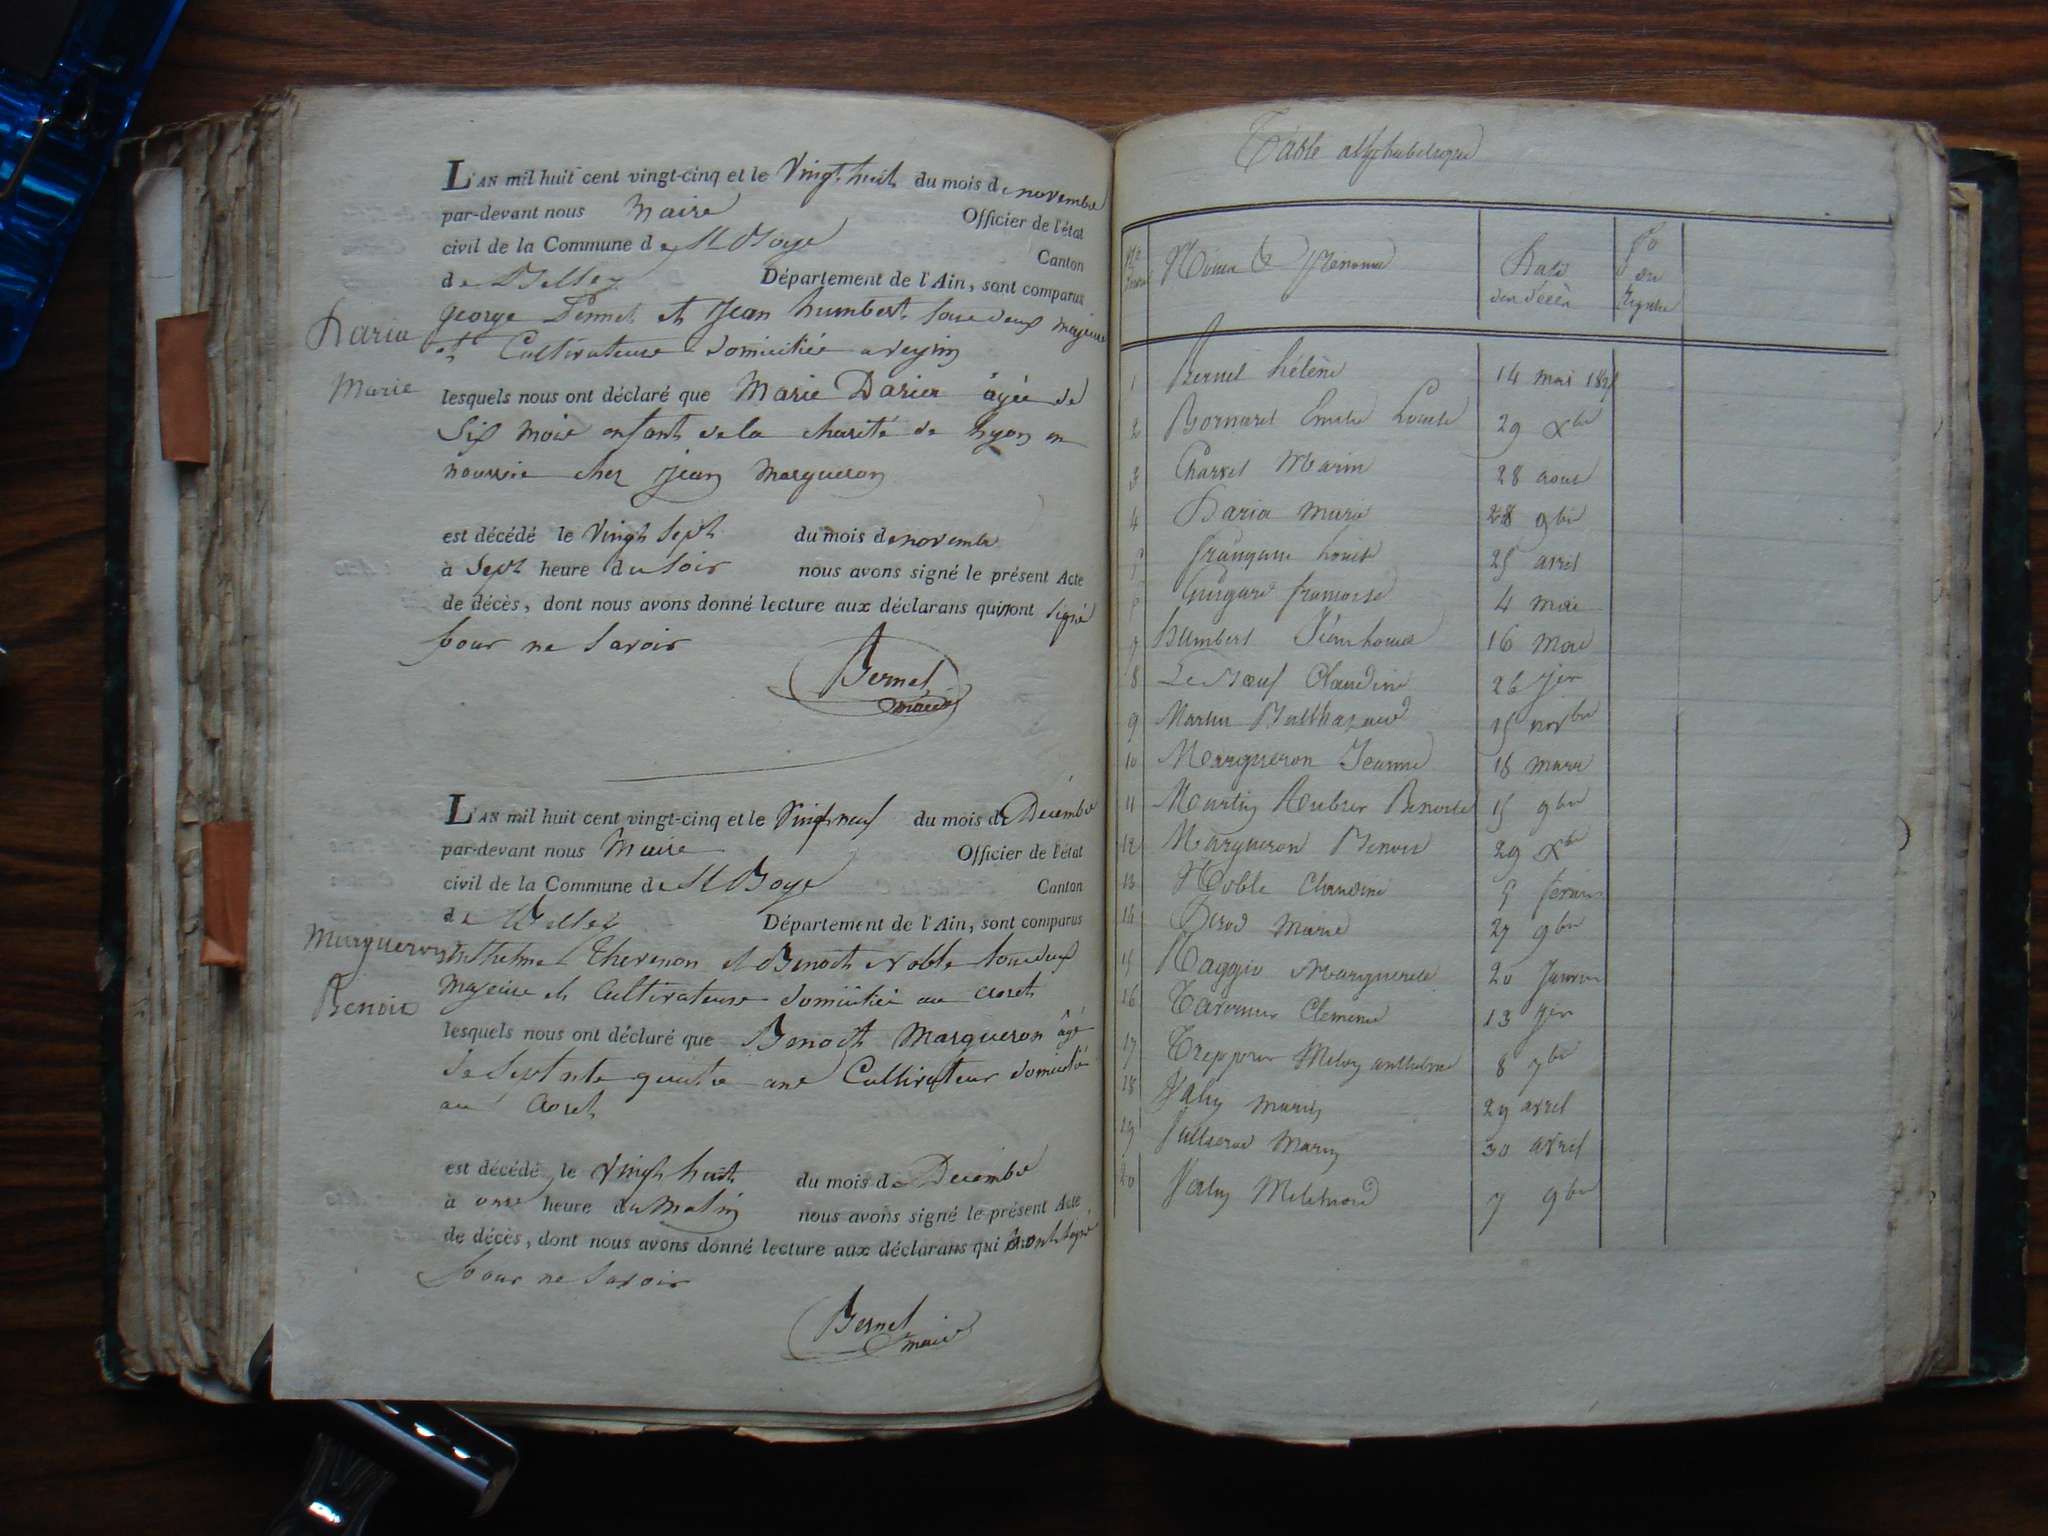 L'AN mil huit cent vingt-cinq et le Vingt huit du mois de novembre
par-devant nous Maire Officier de l'état
civil de la Commune de St Boys Canton
de Belley Département de l'Ain, sont comparus
george et Jean humbert tous deux majeurs
et Cultivateurs domiciliés a veyrin
Daria
Marie
lesquels nous ont déclaré que Marie Darier âgée de
Six mois enfant de la charité de Lyon en
nourrie chez jean Margueron
est décédé le Vingt Sept du mois de novembre
à Sept heure du Soir nous avons signé le présent Acte
de décès, dont nous avons donné lecture aux déclarans qui n'ont signé
pour ne Savoir
Bernel
maire
L'AN mil huit cent vingt-cinq et le Vingt neuf du mois de Décembre
par-devant nous Maire Officier de l'état
civil de la Commune de St Boys Canton
de Belley Département de l'Ain, sont comparus
Margueron
Anthelme Thevenon et Benoit Noble tous deux
Benoit
Majeurs et Cultivateurs domiciliés au
lesquels nous ont déclaré que Benoit Margueron âgé
de Septante quatre ans Cultivateur domicilié
au
est décédé le Vingt huit du mois de Decembre
à onze heure du Matin nous avons signé le présent Acte
de décès, dont nous avons donné lecture aux déclarans qui n'ont signé
pour ne Savoir
Bernel
maire
Table alphabetique
Noms & Prenoms Date des décès fo du Registre
1 Bernel hélène 14 mai 1825
2 Bornard Louise 29 Xbre
3 Charvet Marin 28 aout
4 Daria Marie 28 9bre
5 françoise Louise 25 avril
6 françoise 4 mai
7 humbert Jean Louis 16 Mai
8 Le Boeuf Claudine 26 Jer
9 Martin Balthazard 15 novbre
10 Margueron Jeanne 18 mars
11 Martin Benoite 15 9bre
12 Margueron Benoit 29 Xbre
13 Noble Claudine 5 fevrier
14 Marie 27 9bre
15 Marguerite 20 Janvier
16 Clemence 13 Jer
17 anthelme 8 7bre
18 Marin 29 avril
19 Marin 30 avril
20 Melchiord 7 9bre